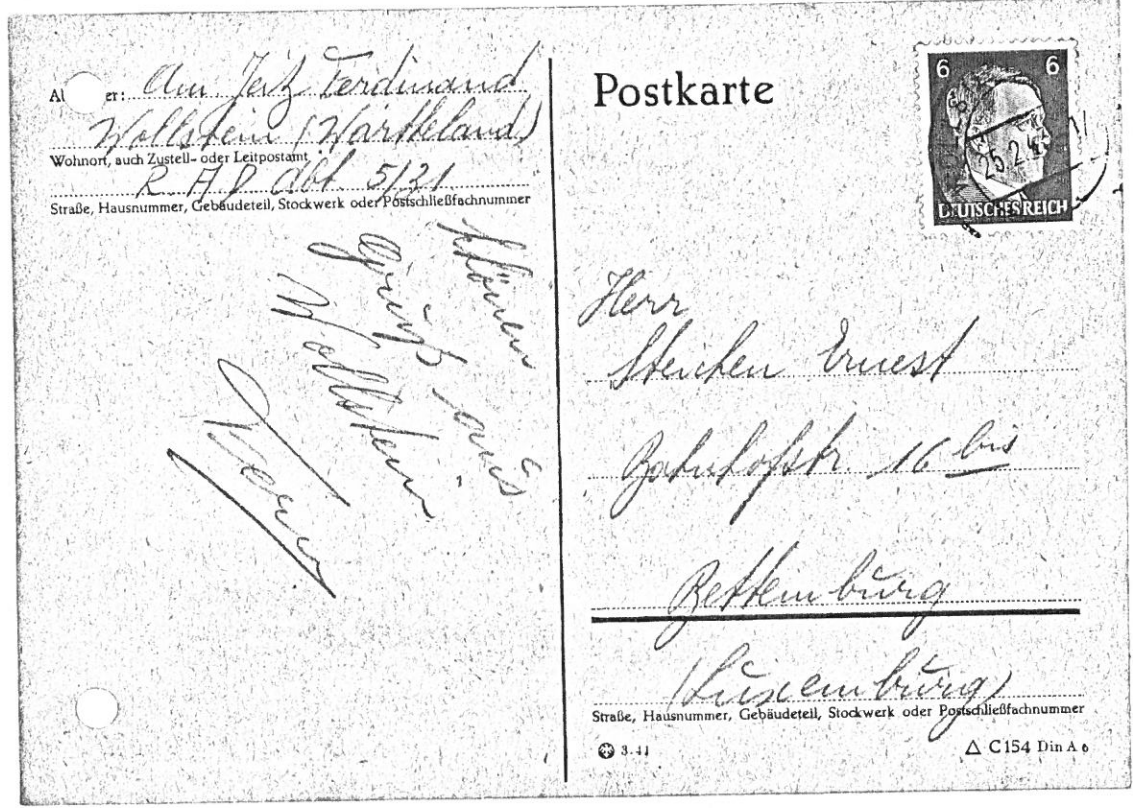 Postkarte
6 6
25.2.4
DEUTSCHES REICH
er: Ferdinand
Wollstein (Wartheland)
Wohnort, auch Zustell- oder Leitpostamt
R. A. D. Abt. 5/31
Straße, Hausnummer, Gebäudeteil, Stockwerk oder Postschließfachnummer
Schönen
Gruß aus
Wollstein
Herr
Steichen Ernest
Bahnhofstr. 16 bis
Bettemburg
(Luxemburg)
Straße, Hausnummer, Gebäudeteil, Stockwerk oder Postschließfachnummer
3.41
C154 Din A 6